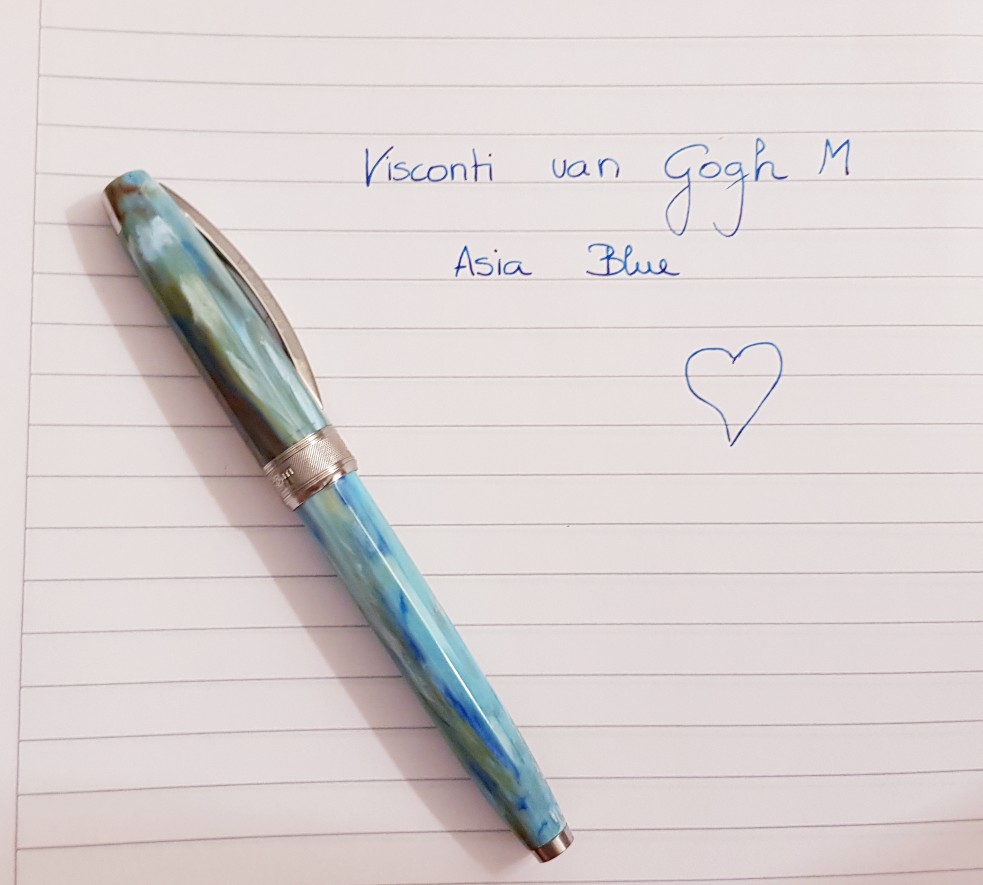 Visconti van Gogh M
Asia Blue